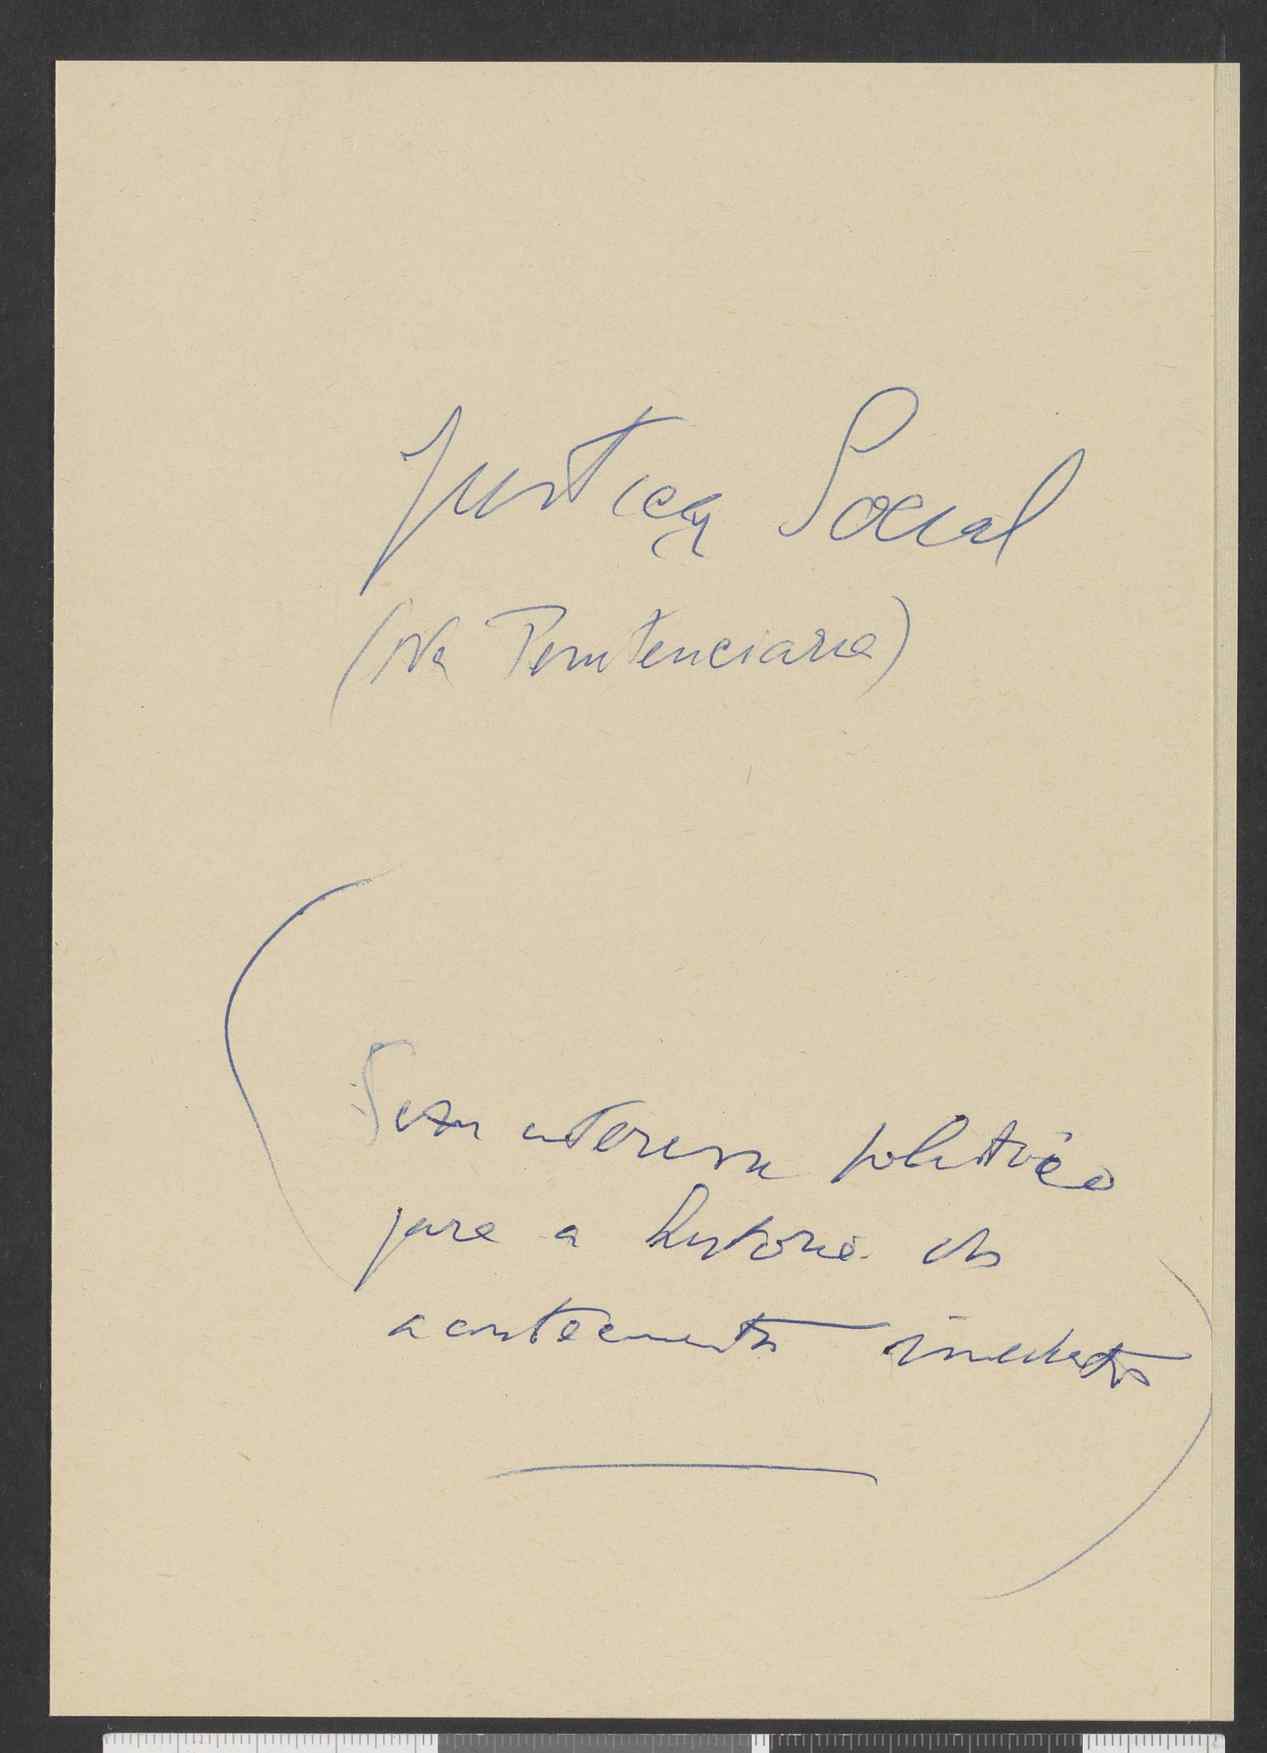 Justiça Social
(Na Penitenciaria)
(Sem interesse politico
para a historia dos
acontecimentos imediatos)